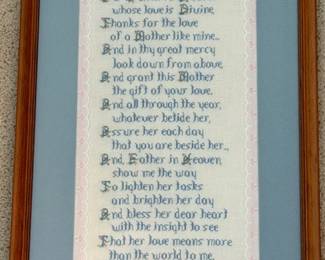 whose love is Divine,
Thanks for the love
of a Mother like mine..
And in thy great mercy
look down from above
And grant this Mother
the gift of your love.
And all through the year,
whatever betide her,
Assure her each day
that you are beside her..
And, Father in Heaven,
show me the way
To lighten her tasks
and brighten her day
And bless her dear heart
with the insight to see
That her love means more
than the world to me.